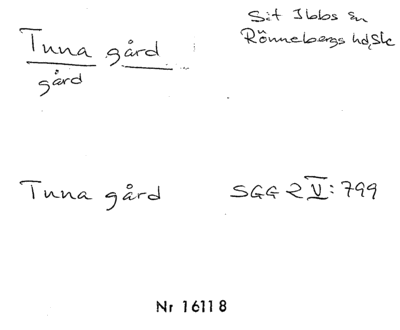 Tuna gård
gård
Sit Ibbs sn
Rönnebergs hd, Sk
Tuna gård SGG 2 V: 799
Nr 16118